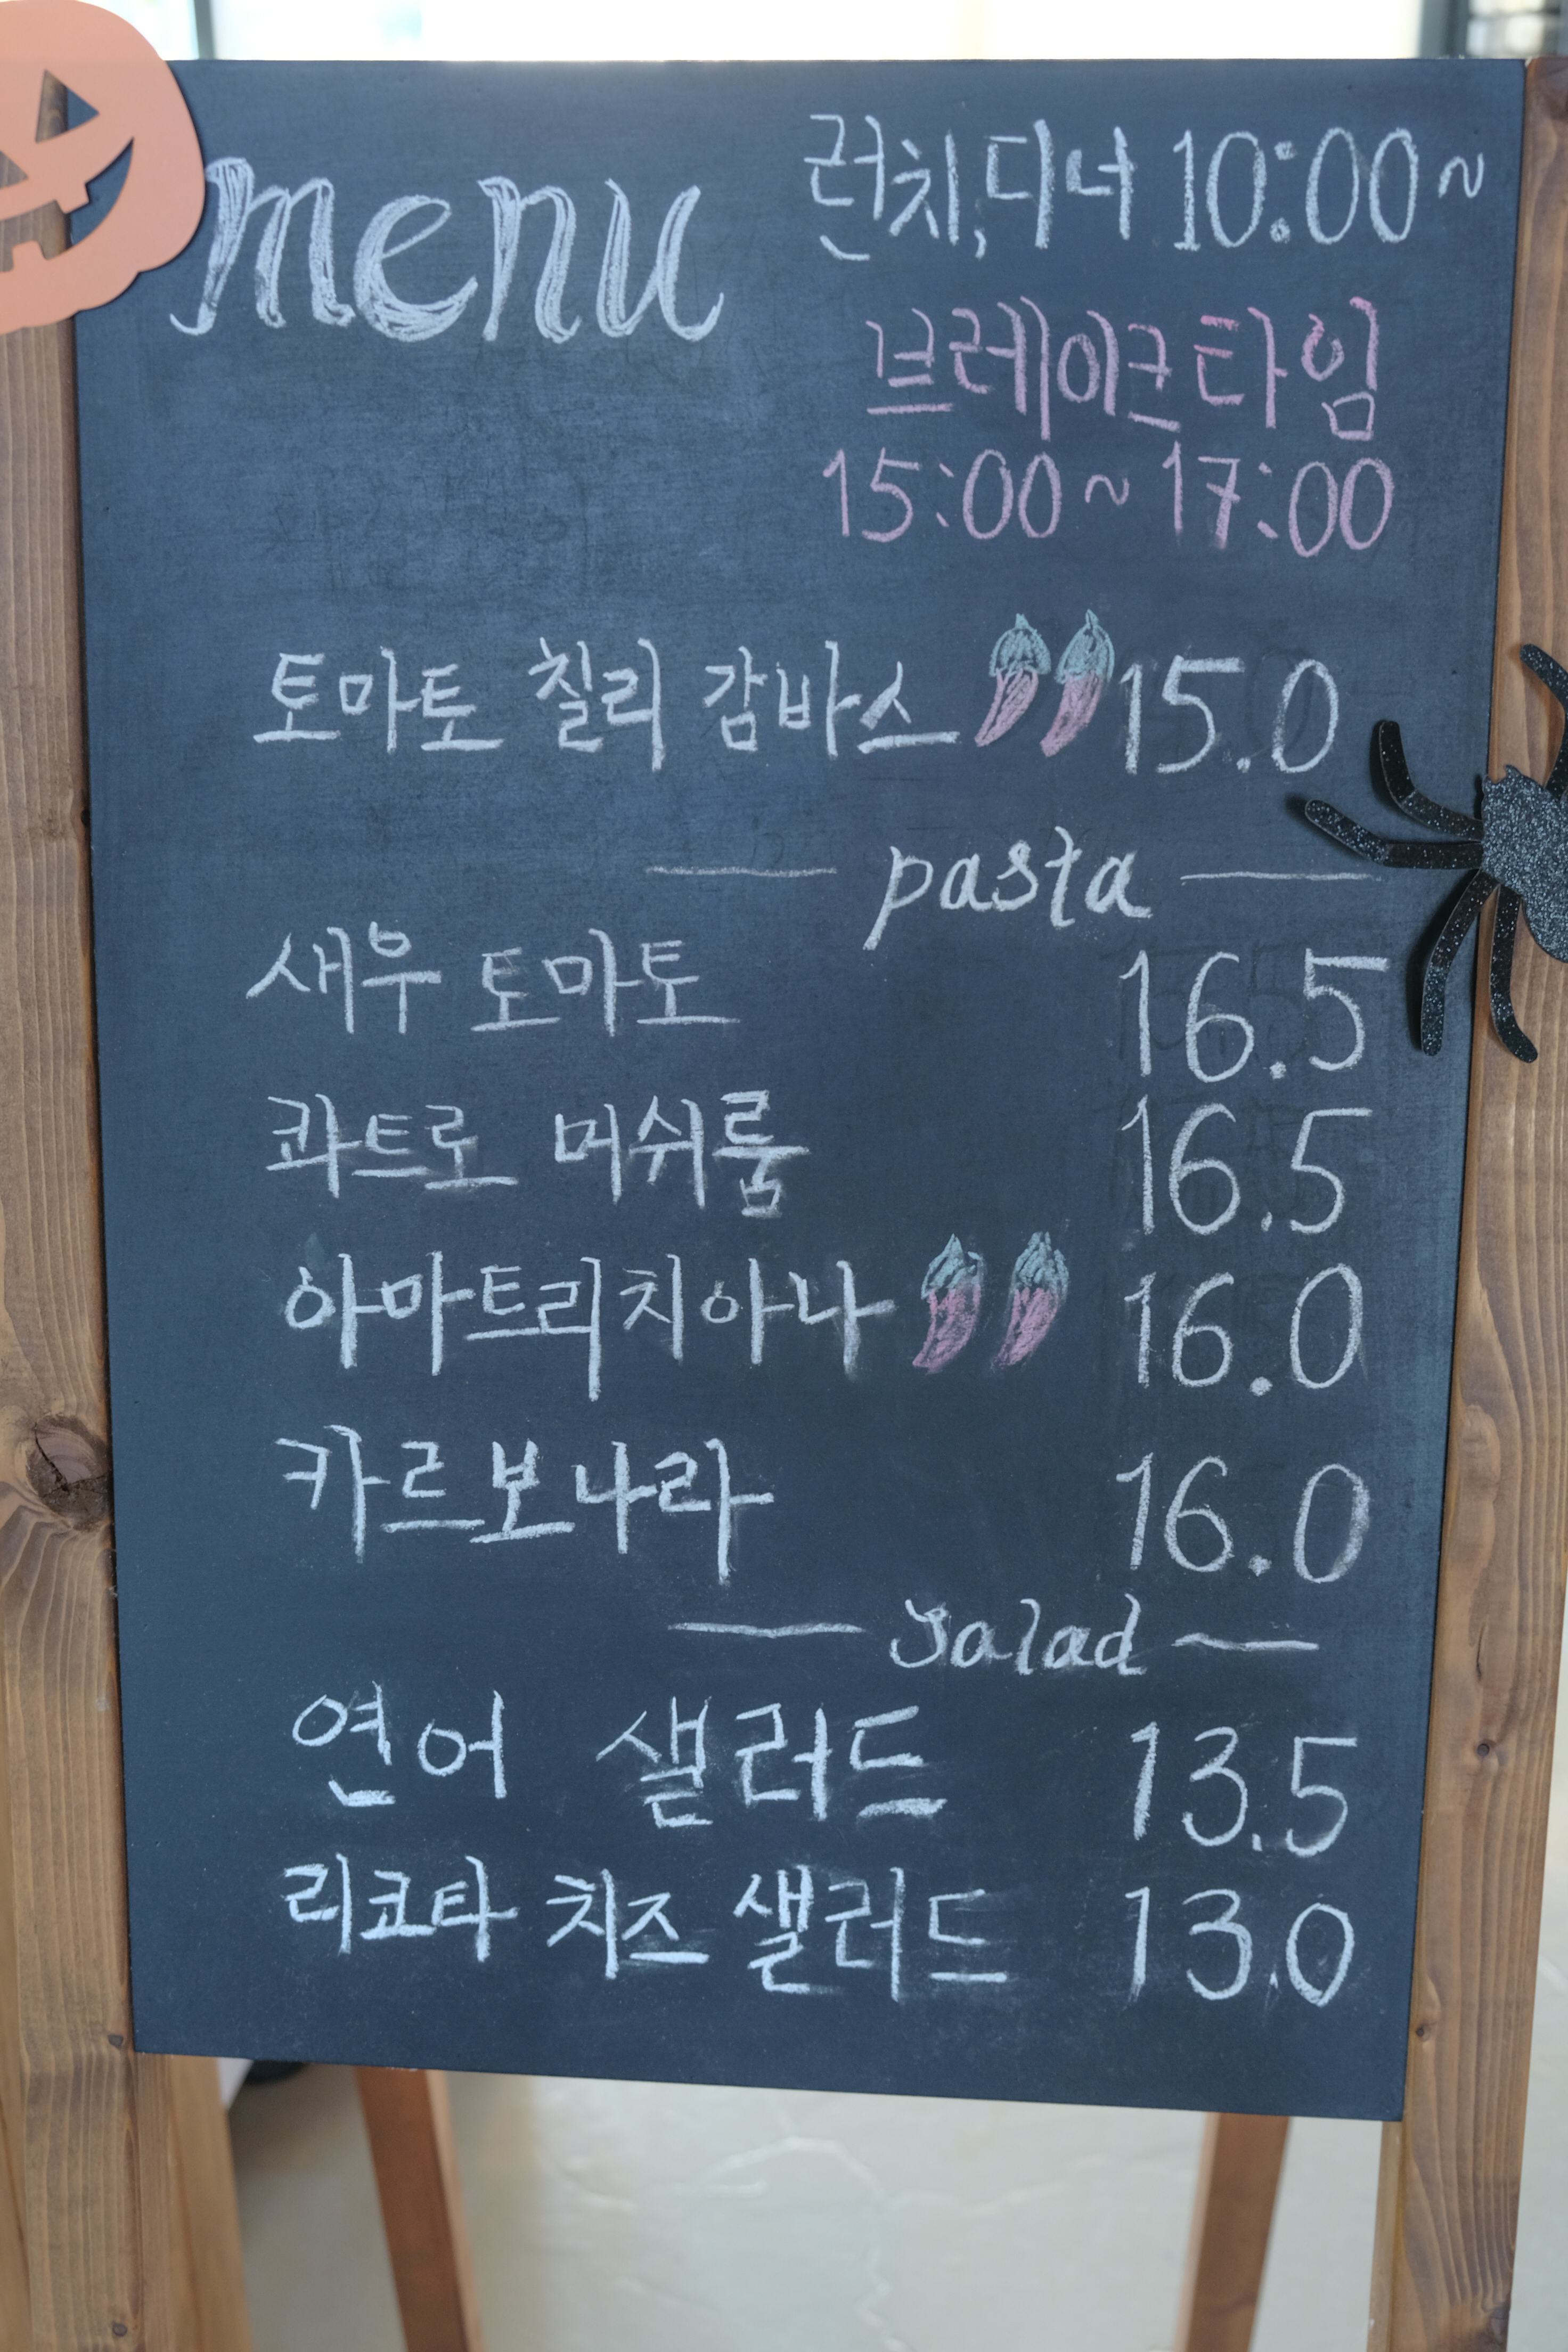 menu
런치,디너 10:00~
브레이크타임
15:00~17:00
토마토 칠리 감바스 15.0
pasta
새우 토마토 16.5
콰트로 머쉬룸 16.5
아마트리치아나 16.0
카르보나라 16.0
salad
연어 샐러드 13.5
리코타 치즈 샐러드 13.0